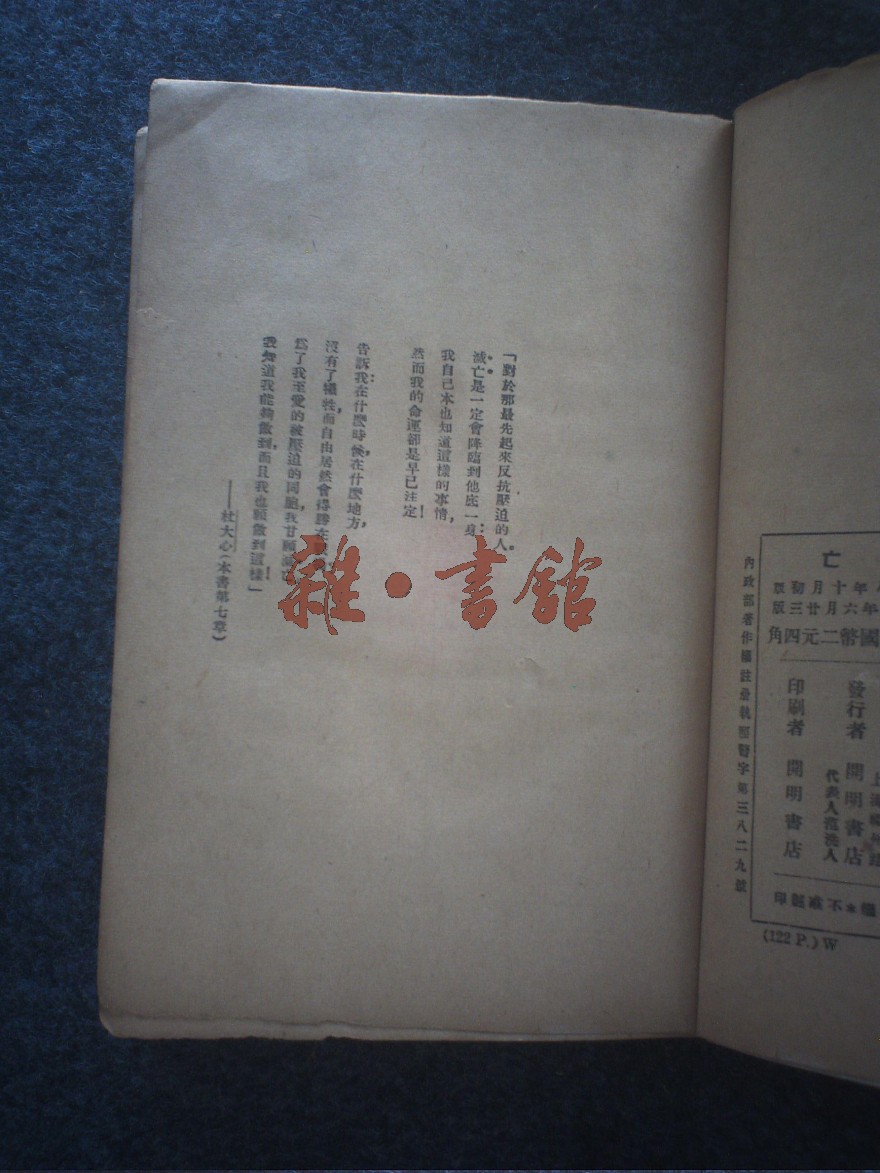 「對於那最先起來反抗壓迫的人,
滅亡是一定會降臨到他底一身:
我自己本也知道這樣的事情,
然而我的命運卻是早已注定!
告訴我:在什麼時候,在什麼地方,
沒有了犧牲,而自由居然會得勝在
爲了我至愛的被壓迫的同胞,我甘願滅亡
我知道我能夠做到,而且我也願做到這樣!」
——杜大心(本書第七章)
雜·書館
亡
年十月初版
年六月廿三版
國幣二元四角
發行者 開明書店
代表人范洗人
印刷者 開明書店
不准翻印
內政部著作權註册執照警字第三八二九號
(122 P.) W